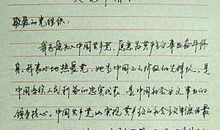 敬爱的党组织：
我志愿加入中国共产党，愿意为共产主义事业奋斗终
身。我衷心地热爱党，她是中国工人阶级的先锋队，是
中国各族人民利益的忠实代表，是中国社会主义事业的
领导核心。中国共产党以实现共产主义的社会制度为最